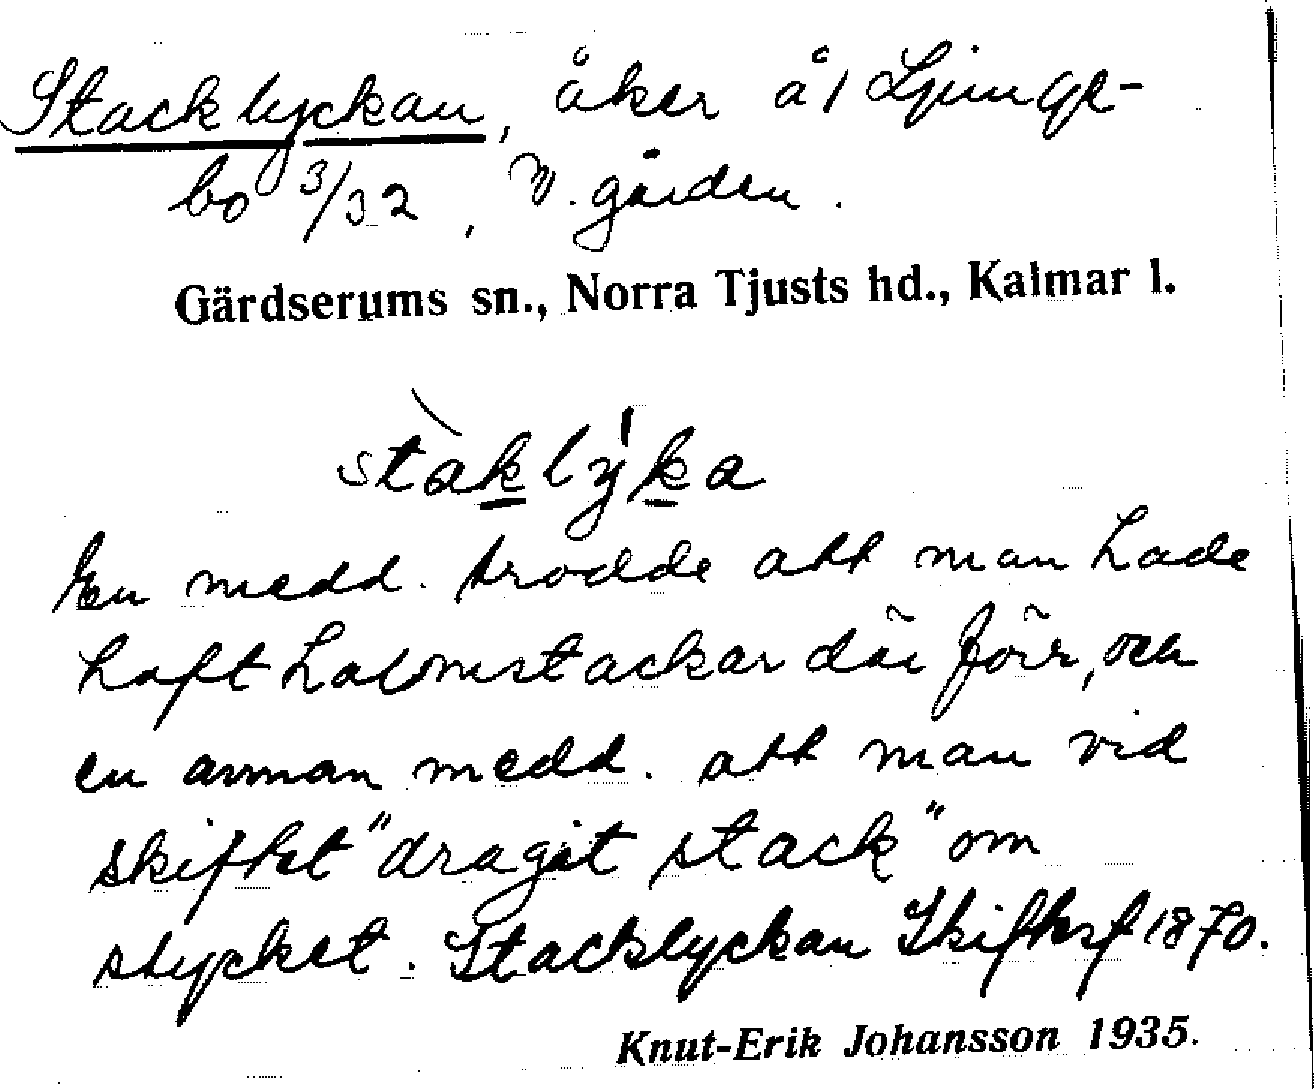 Stacklyckan, åker å 1 Ljunge-
bo 3/32, N. gården.
Gärdserums sn., Norra Tjusts hd., Kalmar l.
stàklýka
En medd. trodde att man hade
haft halmstackar där förr, och
en annan medd. att man vid
skiftet "dragit stack" om
stycket. Stacklyckan Skifteskf 1870.
Knut-Erik Johansson 1935.